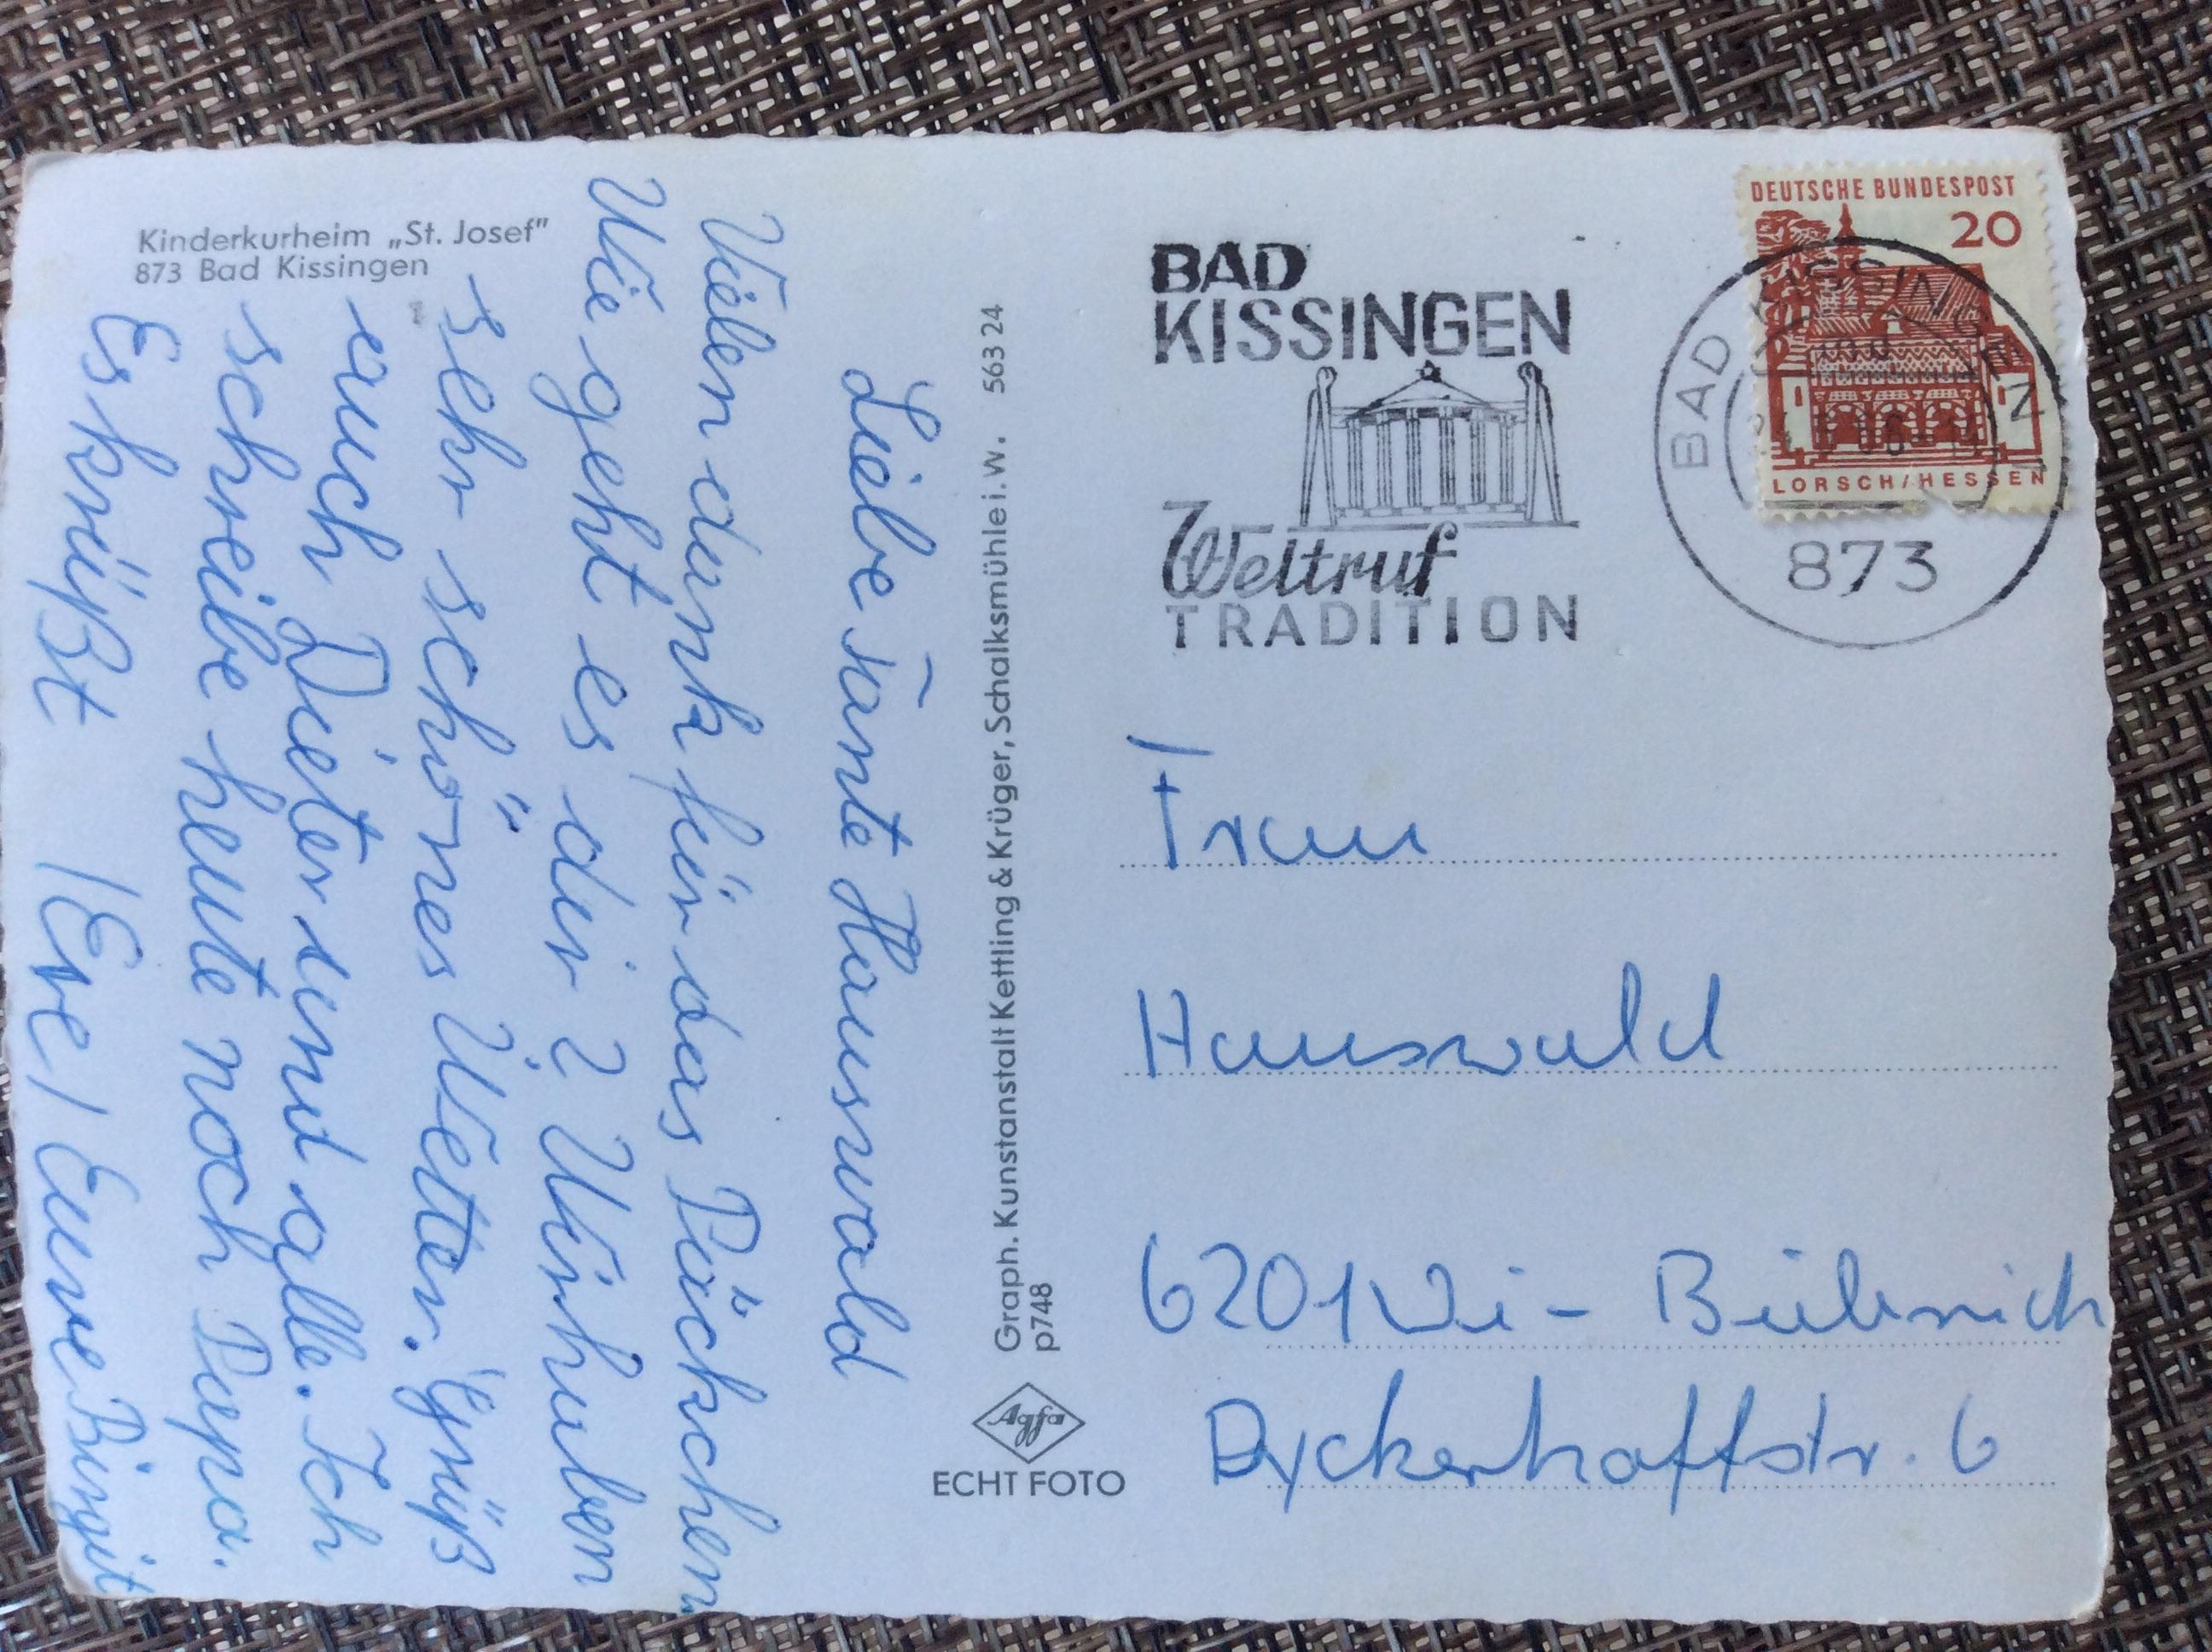 Kinderkurheim „St. Josef"
873 Bad Kissingen
Liebe Tante Hauswald
Vielen dank für das Päckchen
Wie geht es dir? Wir haben
sehr schönes Wetter. Grüß
auch Dieter und alle. Ich
schreibe heute noch Papa.
Es grüßt Eure Birgit
Graph. Kunstanstalt Kettling & Krüger, Schalksmühle i. W. 563 24
p748
Agfa
ECHT FOTO
BAD
KISSINGEN
Weltruf
TRADITION
DEUTSCHE BUNDESPOST
20
LORSCH/HESSEN
BAD KISSINGEN 1
873
Frau
Hauswald
6201 Wi-
Dyckerhoffstr. 6